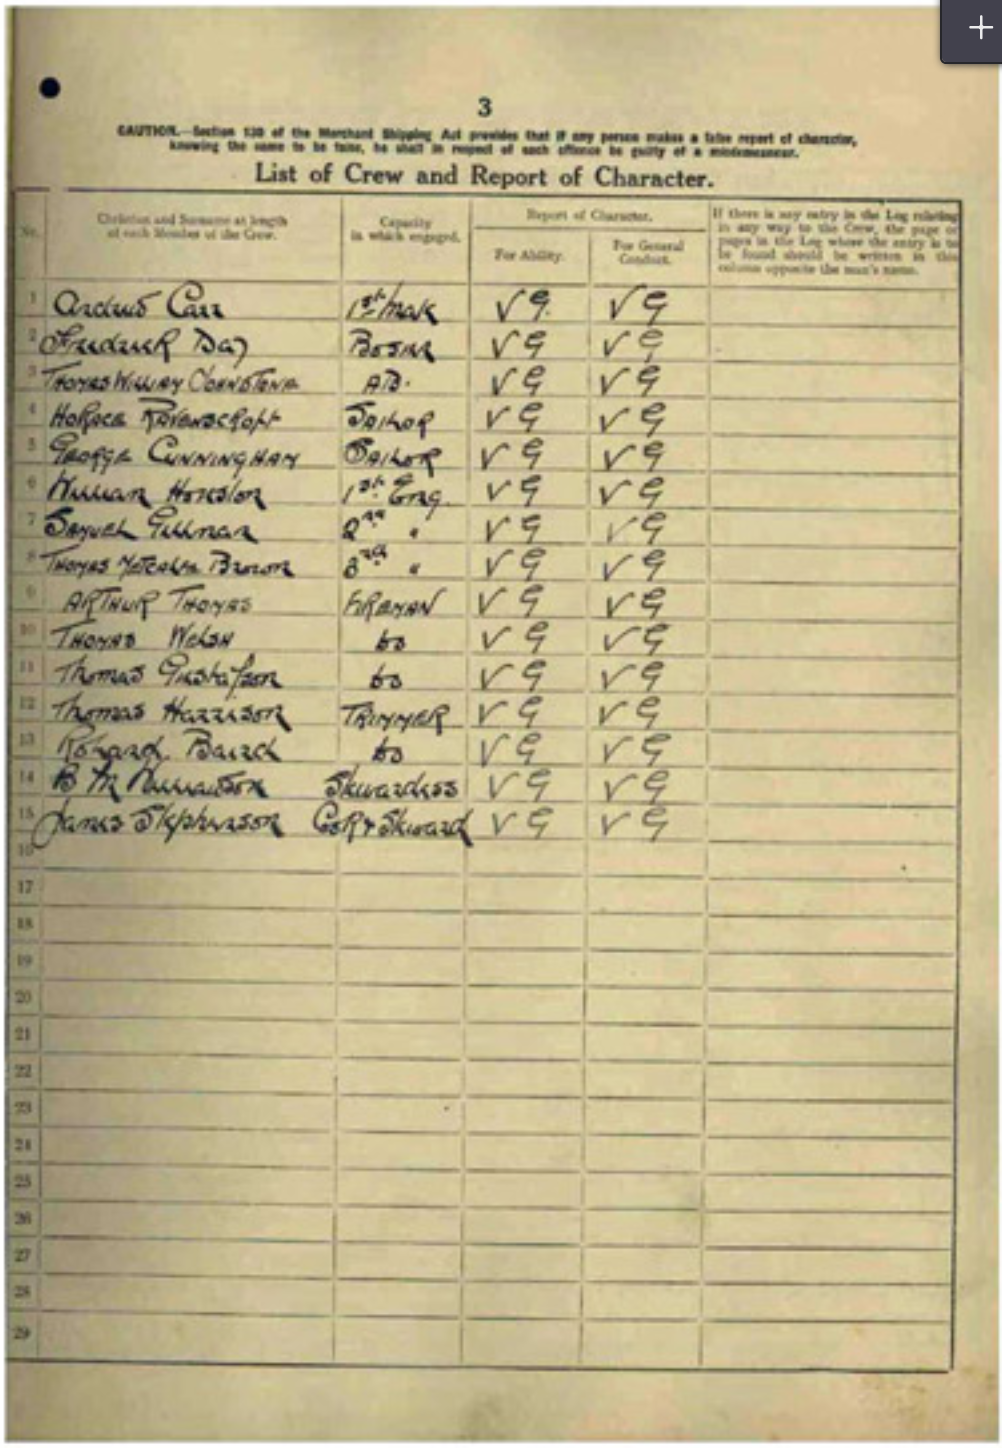 3
CAUTION.—Section 130 of the Merchant Shipping Act provides that if any person makes a false report of character,
knowing the same to be false, he shall in respect of each offence be guilty of a misdemeanour.
List of Crew and Report of Character.
No. Christian and Surname at length of each Member of the Crew. Capacity in which engaged. Report of Character. For Ability. For General Conduct. If there is any entry in the Log relating in any way to the Crew, the page or pages in the Log where the entry is to be found should be written in this column opposite the man's name.
1 Carr 1st Mate V G. V G
2 Frederick Day Bosun V G V G
3 THOMAS WILLIAM A.B. V G V G
4 HORACE RAVENSCROFT SAILOR V G V G
5 GEORGE CUNNINGHAM SAILOR V G V G
6 William 1st Eng. V G V G
7 SAMUEL Gillman 2nd " V G V G
8 THOMAS METCALFE Brown 3rd " V G V G
9 ARTHUR THOMAS FIREMAN V G V G
10 THOMAS WELSH do V G V G
11 Thomas Gustafson do V G V G
12 Thomas Harrison TRIMMER V G V G
13 Ronard. Baird do V G V G
14 B M Stewardess V G V G
15 James Stephenson Cook & Steward V G V G
16
17
18
19
20
21
22
23
24
25
26
27
28
29